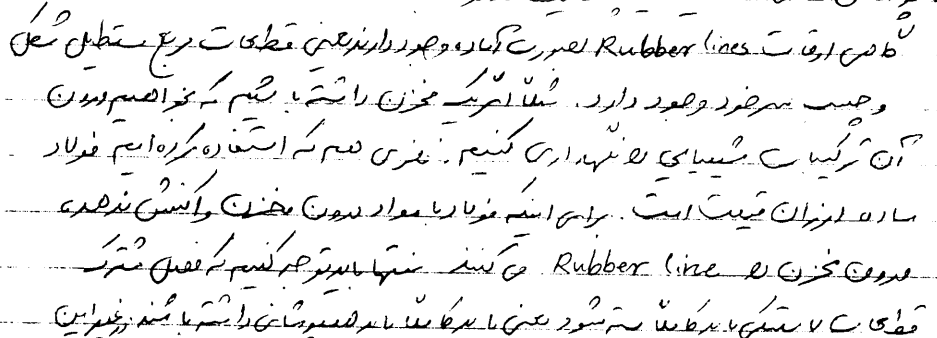 گاهی اوقات Rubber lines بصورت آماده وجود دارند یعنی قطعات مربع مستطیل شکل
و چسب سرخود وجود دارد. مثلاً اگر یک مخزن داشته باشیم که بخواهیم درون
آن ترکیبات شیمیایی را نگهداری کنیم. فلزی هم که استفاده کرده ایم فولاد
ساده ارزان قیمت است. برای اینکه فولاد با مواد درون مخزن واکنش ندهد،
درون مخزن را Rubber line می کنند منتها باید توجه کنیم که فصل مشترک
قطعات لاستیکی باید کاملاً بسته شود یعنی باید کاملاً باید همپوشانی داشته باشند. در غیر این